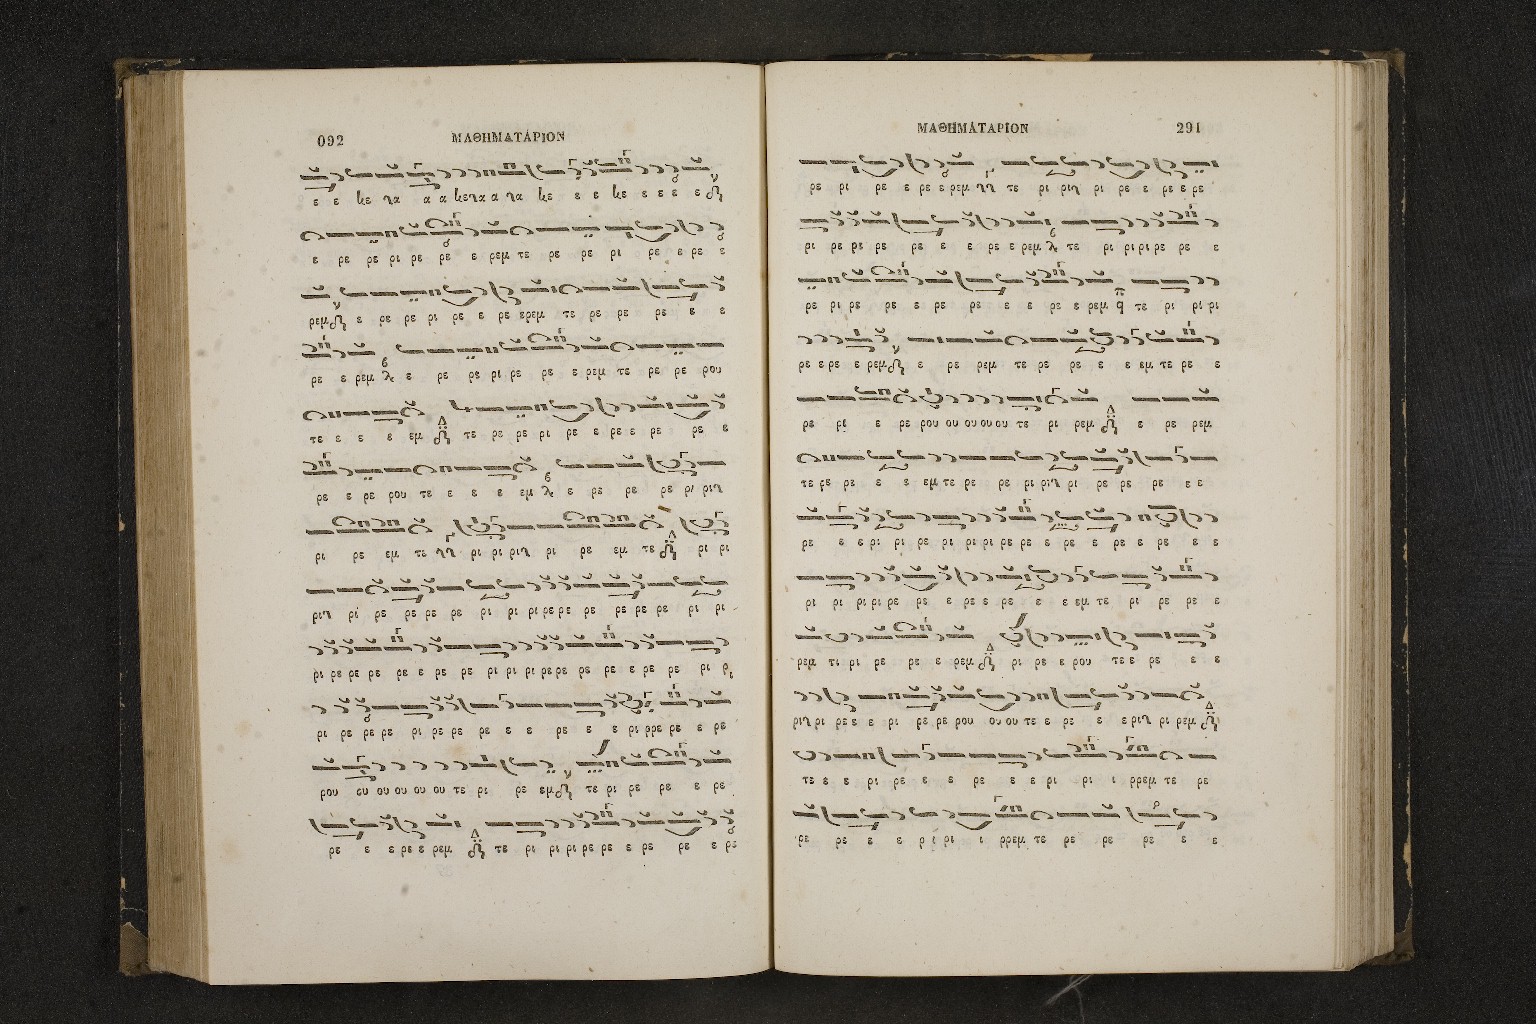 092 ΜΑΘΗΜΑΤΑΡΙΟΝ
ε ε κε γα α α κε γα α γα κε ε ε κε ε ε ε ε
ε ρε ρε ρι ρε ρε ε ρεμ τε ρε ρε ρι ρε ε ρε ε
ρεμ ε ρε ρε ρι ρε ε ρε ερεμ τε ρε ρε ρε ε ε
ρε ε ρεμ ε ρε ρε ρι ρε ρε ε ρεμ τε ρε ρε ρου
τε ε ε ε εμ τε ρε ρε ρε ρι ρε ε ρε ε ρε ρε ε
ρε ε ρε ρου τε ε ε ε εμ ε ρε ρε ρε ρι ριγ
ρι ρε εμ τε ρι ρι ριγ ρι ρε εμ τε ρι ρι
ριγ ρι ρε ρε ρε ρε ρι ρι ρι ρε ρε ρε ρε ρε ρε ρι ρι
ρι ρε ρε ρε ρε ε ρε ρε ρι ρι ρι ρε ρε ρε ρε ε ρε ρε ρι ρι
ρι ρε ρε ρε ρι ρε ρε ρε ε ε ρε ε ε ρι ρρε ρε ε ρε
ρου ου ου ου ου ου τε ρι ρε εμ τε ρι ρε ρε ε ρε
ρε ε ε ρε ε ρεμ τε ρι ρι ρι ρε ρε ε ρε ρε ε ρε
ΜΑΘΗΜΑΤΑΡΙΟΝ 291
ρε ρι ρε ε ρε ε ρεμ τε ρι ριγ ρι ρε ε ρε ε ρε
ρι ρε ρε ρε ρε ε ε ρε ε ρεμ τε ρι ρι ρι ρε ρε ε
ρε ρι ρε ρε ε ρε ρε ε ε ρε ε ρεμ τε ρι ρι ρι
ρε ε ρε ε ρεμ ε ρε ρεμ τε ρε ρε ε ε εμ τε ρε ε
ρε ρι ε ρε ρου ου ου ου ου τε ρι ρεμ ε ρε ρεμ
τε ρε ρε ε ε εμ τε ρε ρε ρι ριγ ρι ρε ρε ρε ε ε
ρε ε ε ρι ρι ρε ρι ρι ρι ρε ρε ε ρε ε ρε ε ρε ε ε
ρι ρι ρι ρι ρε ρε ε ρε ε ρε ε ε εμ τε ρι ρε ρε ε
ρεμ τι ρι ρε ρε ε ρεμ ρι ρε ε ρου τε ε ρε ε ε
ριγ ρι ρε ε ε ρι ρε ρε ρου ου ου τε ε ρε ε ε ριγ ρι ρεμ
τε ε ε ρι ρε ε ε ρε ε ε ρι ρι ι ρρεμ τε ρε
ρε ρε ε ε ρι ρι ι ρρεμ τε ρε ρε ρε ε ε